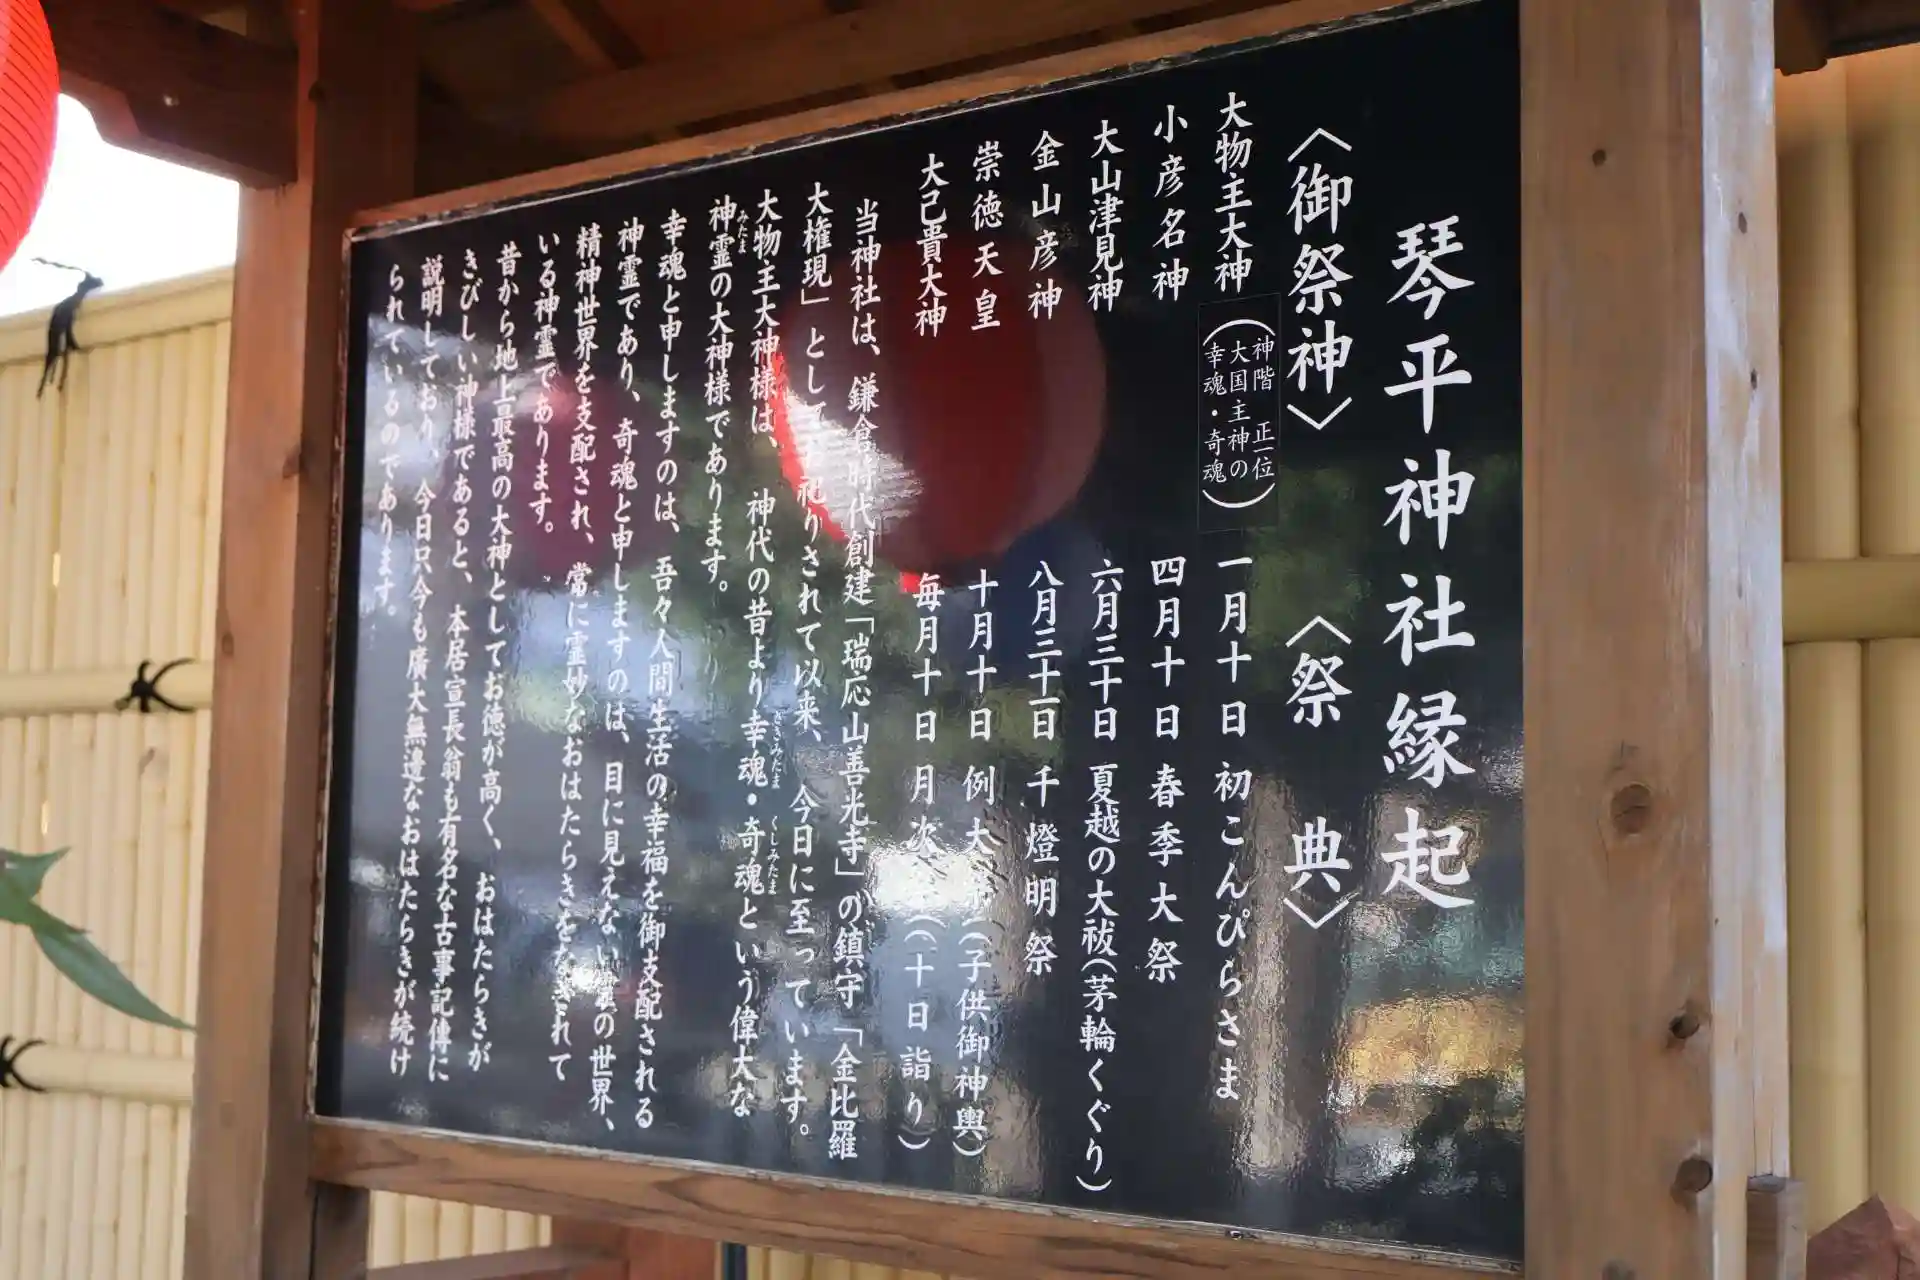 琴平神社縁起
〈御祭神〉　〈祭　典〉
大物主大神（神階　正一位
大国主神の
幸魂・奇魂）　一月十日　初こんぴらさま
小彦名神　四月十日　春季大祭
大山津見神　六月三十日　夏越の大祓（茅輪くぐり）
金山彦神　八月三十一日　千燈明祭
崇徳天皇　十月十日　例大（子供御神輿）
大己貴大神　毎月十日　月次（十日詣り）
当神社は、鎌倉時代創建「瑞応山善光寺」の鎮守「金比羅
大権現」としてお祀りされて以来、今日に至っています。
大物主大神様は、神代の昔より幸魂・奇魂という偉大な
さきみたま
くしみたま
神霊の大神様であります。
みたま
幸魂と申しますのは、吾々人間生活の幸福を御支配される
神霊であり、奇魂と申しますのは、目に見えないの世界、
精神世界を支配され、常に霊妙なおはたらきをなされて
いる神霊であります。
昔から地上最高の大神としてお徳が高く、おはたらきが
きびしい神様であると、本居宣長翁も有名な古事記傳に
説明しており、今日只今も廣大無邊なおはたらきが続け
られているのであります。